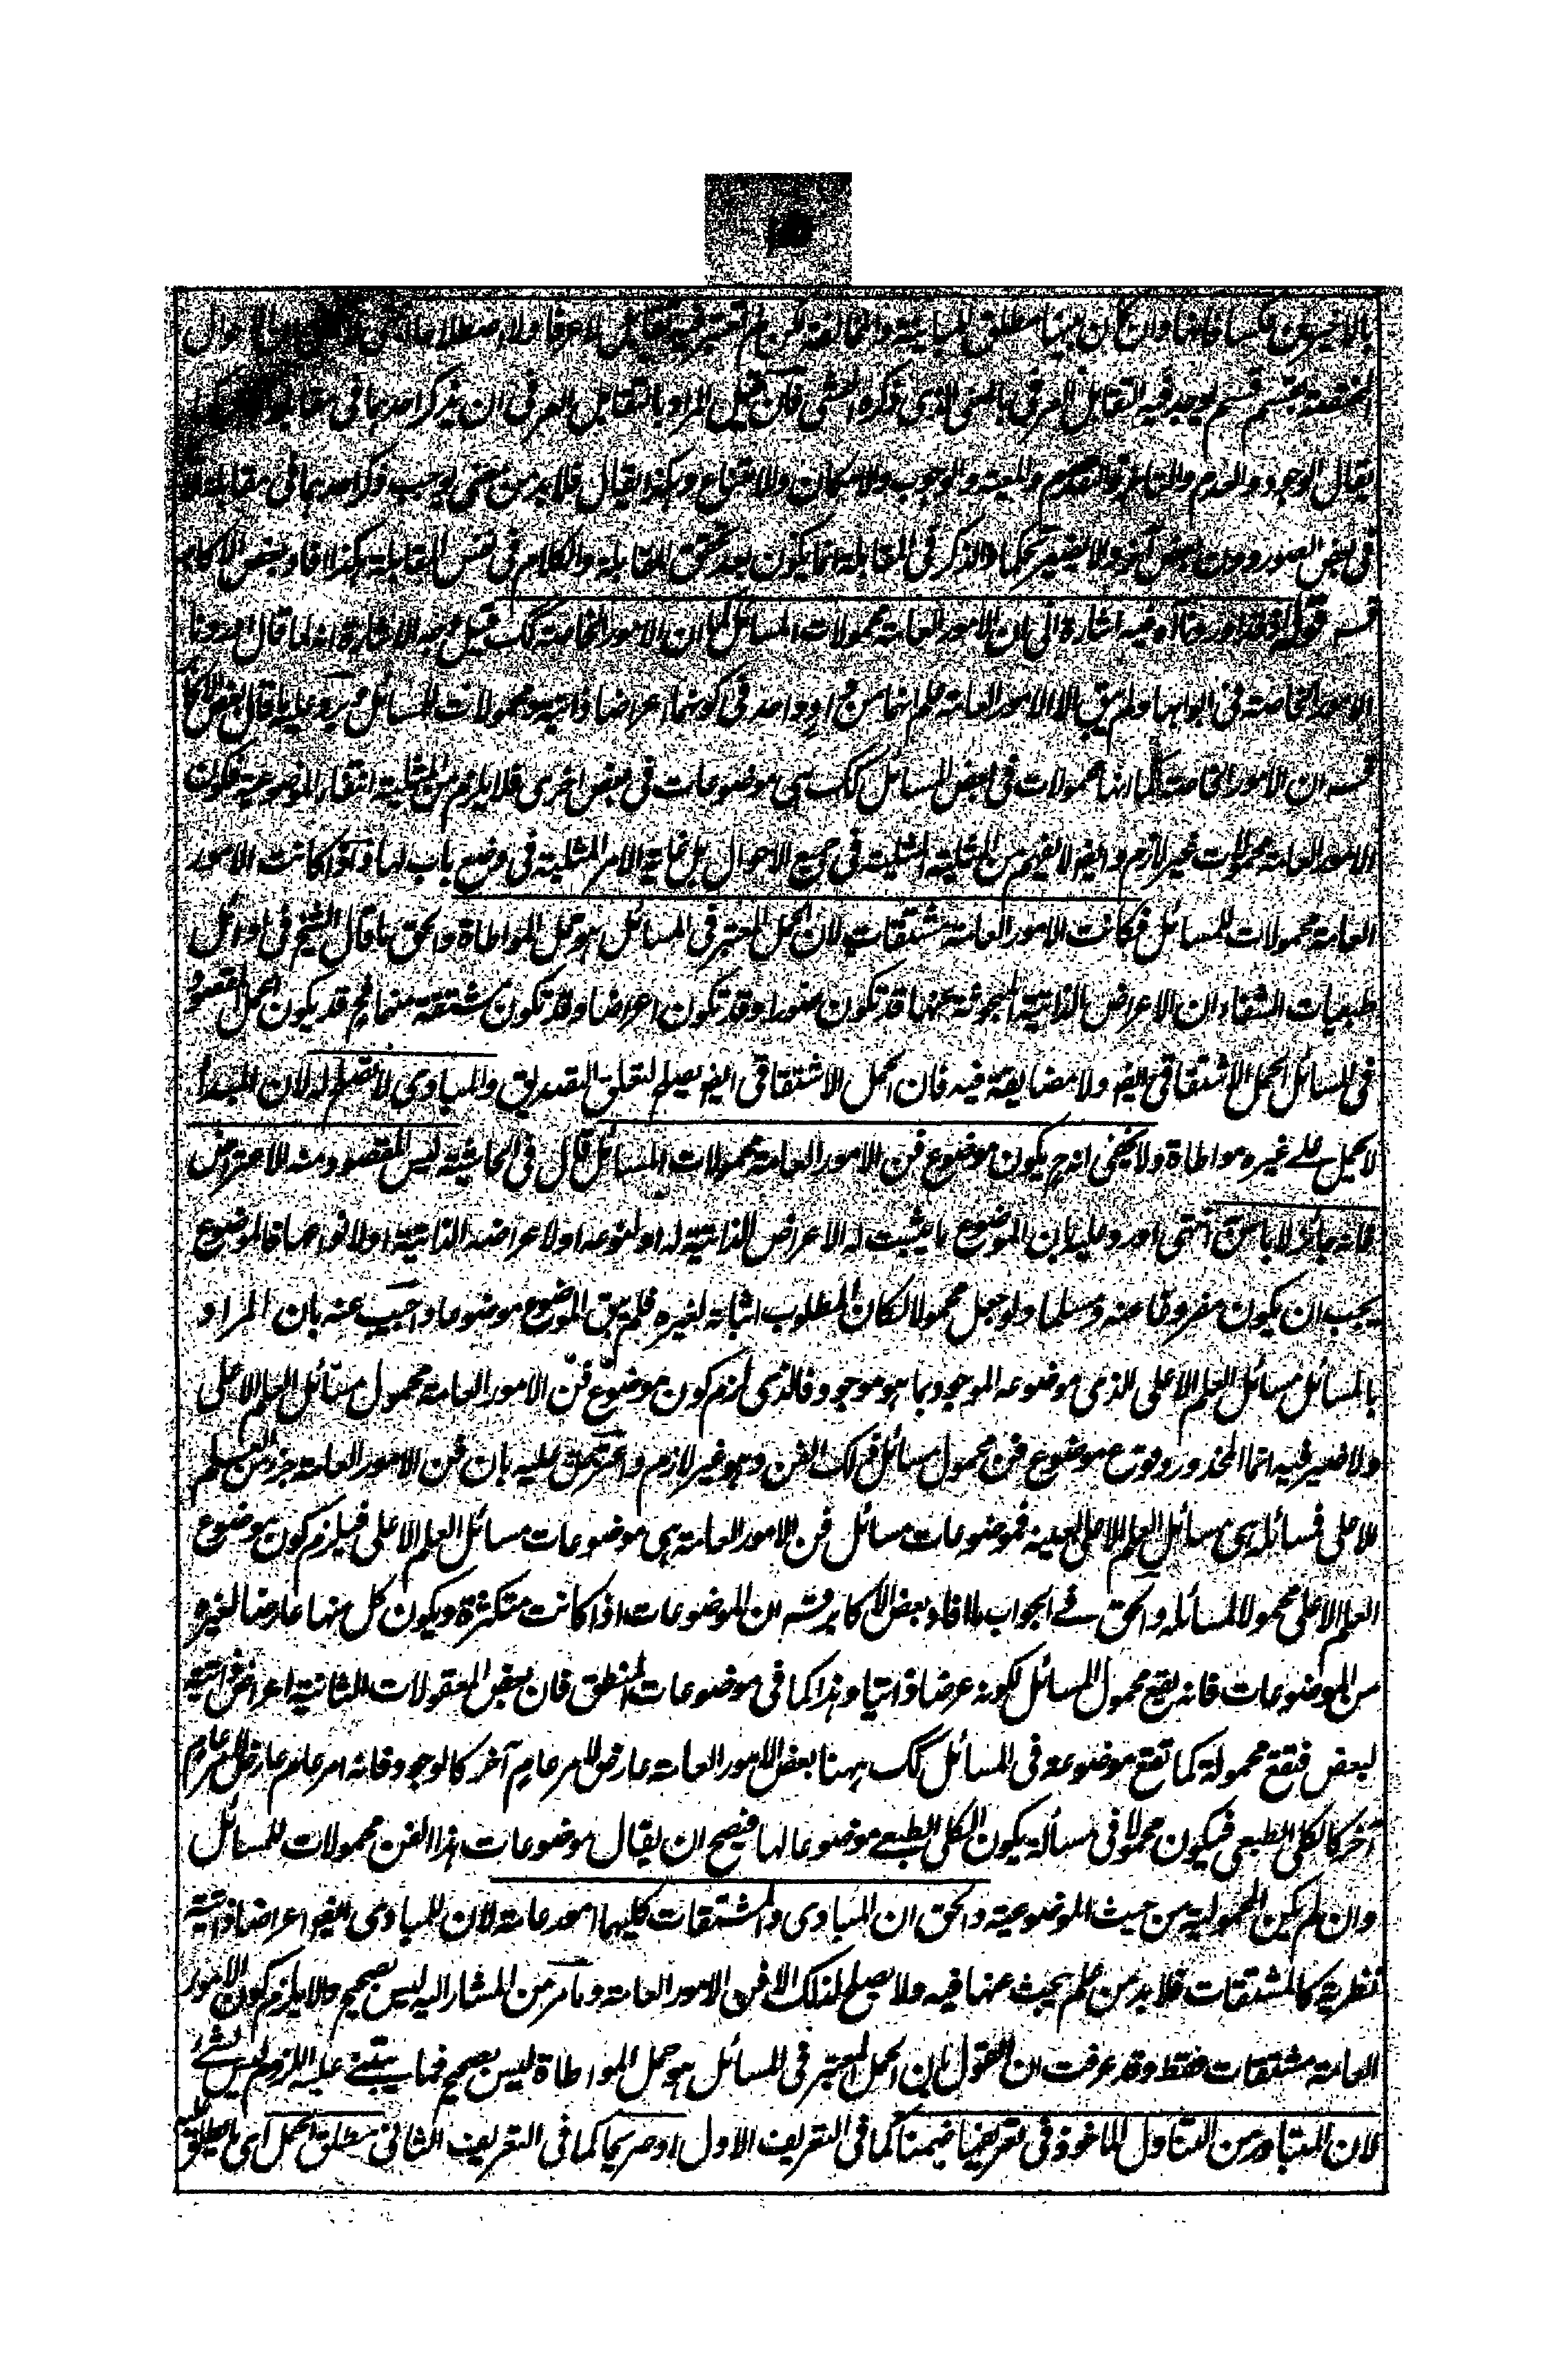 ١٥
بالاخيرين فكساقانها وان كان بينها مطلق المباينة والمخالفة لكن لم تعتبر فيه تقابل لا عرفا ولا اصطلاحا الاحوال
المختصة بقسم قسم يوجد فيه التقابل العرفى بالمعنى الذى ذكره المحشى فان قيل المراد بالتقابل العرفى ان يذكر احدهما فى مقابلة
يقال الوجود والعدم والتقدم والمعية والوجوب والامكان والامتناع وهكذا يقال فلا بد من معنى يوجب ذكر احدهما فى مقابلة
فى بعض الصور دون بعض آخر والا يصير تحكما والذكر فى المقابلة انما يكون بعد تحقق المقابلة والكلام فى نفس المقابلة هكذا افاد بعض الاكابر
قسه قوله وقد اوردنا آه فيه اشارة الى ان الامور العامة محمولات المسائل كما ان الامور الخاصة كك قيل وجه الاشارة انه لما قال اوردنا
الامور الخاصة فى ابوابها ولم يبق الا الامور العامة علم انهما من واد واحد فى كونهما اعراضا ذاتية ومحمولات للمسائل ويرد عليه ما قال بعض الاكابر
قسه ان الامور الخاصة كما انها محمولات فى بعض المسائل كك هى موضوعات فى بعض اخرى فلا يلزم من المثلية انتفاء الموضوعية فكون
الامور العامة محمولات غير لازم وايضا لا يفهم من المثلية المثلية فى جميع الاحوال بل غاية الامر المثلية فى وضع باب لها واذا كانت الامور
العامة محمولات للمسائل فكانت الامور العامة مشتقات لان الحمل المعتبر فى المسائل هو حمل المواطاة والحق ما قال الشيخ فى اوائل
طبعيات الشفاء ان الاعراض الذاتية المبحوثة عنها قد تكون صورا وقد تكون اعراضا وقد تكون مشتقة منهما فح قد يكون الحمل المقصود
فى المسائل الحمل الاشتقاقى ايضا ولا مضايقة فيه فان الحمل الاشتقاقى ايضا يصلح لتعلق التصديق والمبادى لا تصلح له لان المبدأ
لا يحمل على غيره مواطاة ولا يخفى انه ح يكون موضوع فن الامور العامة محمولات المسائل قال فى الحاشية ليس المقصود منه الاعتراض
فانه جائز لا باس به انتهى اورد عليه بان الموضوع ما يثبت له الاعراض الذاتية له او لنوعه او لاعراضه الذاتية او لانواعها فالموضوع
يجب ان يكون مفروغا عنه ومسلما ولو جعل محمولا لكان المطلوب اثباته لغيره فلم يبق الموضوع موضوعا واجيب عنه بان المراد
بالمسائل مسائل العلم الاعلى الذى موضوعه الموجود بما هو موجود فالذى لزم كون موضوع فن الامور العامة محمول مسائل العلم الاعلى
ولا ضير فيه انما المحذور وقوع موضوع فن محمول مسائل ذلك الفن وهو غير لازم واعترض عليه بان فن الامور العامة جزء من العلم
الاعلى فمسائله هى مسائل العلم الاعلى بعينه فموضوعات مسائل فن الامور العامة هى موضوعات مسائل العلم الاعلى فيلزم كون موضوع
العلم الاعلى محمولا لمسائله والحق فى الجواب ما افاد بعض الاكابر قسه ان الموضوعات اذا كانت متكثرة ويكون كل منها عارضا لغيره
من الموضوعات فانه يقع محمول المسائل لكونه عرضا ذاتيا وهذا كما فى موضوعات المنطق فان بعض المعقولات الثانية اعراض ذاتية
لبعض فتقع محمولة كما تقع موضوعة فى المسائل كك ههنا بعض الامور العامة عارض لامر عام آخر كالوجود فانه امر عام عارض لامر عام
آخر كالكلى الطبعى فيكون محمولا فى مسألة يكون الكلى الطبعى موضوعا لها فيصح ان يقال موضوعات هذا الفن محمولات للمسائل
وان لم يكن المحمولية من حيث الموضوعية والحق ان المبادى والمشتقات كليهما امور عامة لان للمبادى ايضا اعراضا ذاتية
نظرية كالمشتقات فلا بد من علم يبحث عنها فيه ولا يصلح لذلك الا فن الامور العامة وما مر من المشار اليه ليس بصحيح والا يلزم كون الامور
العامة مشتقات فقط وقد عرفت ان القول بان الحمل المعتبر فى المسائل هو حمل المواطاة ليس بصحيح فما يبتنى عليه اللزوم ليس بشئ
لان المتبادر من التناول الماخوذ فى تعريفها ضمنا كما فى التعريف الاول او صريحا كما فى التعريف الثانى مطلق الحمل اى ما يطلق عليه